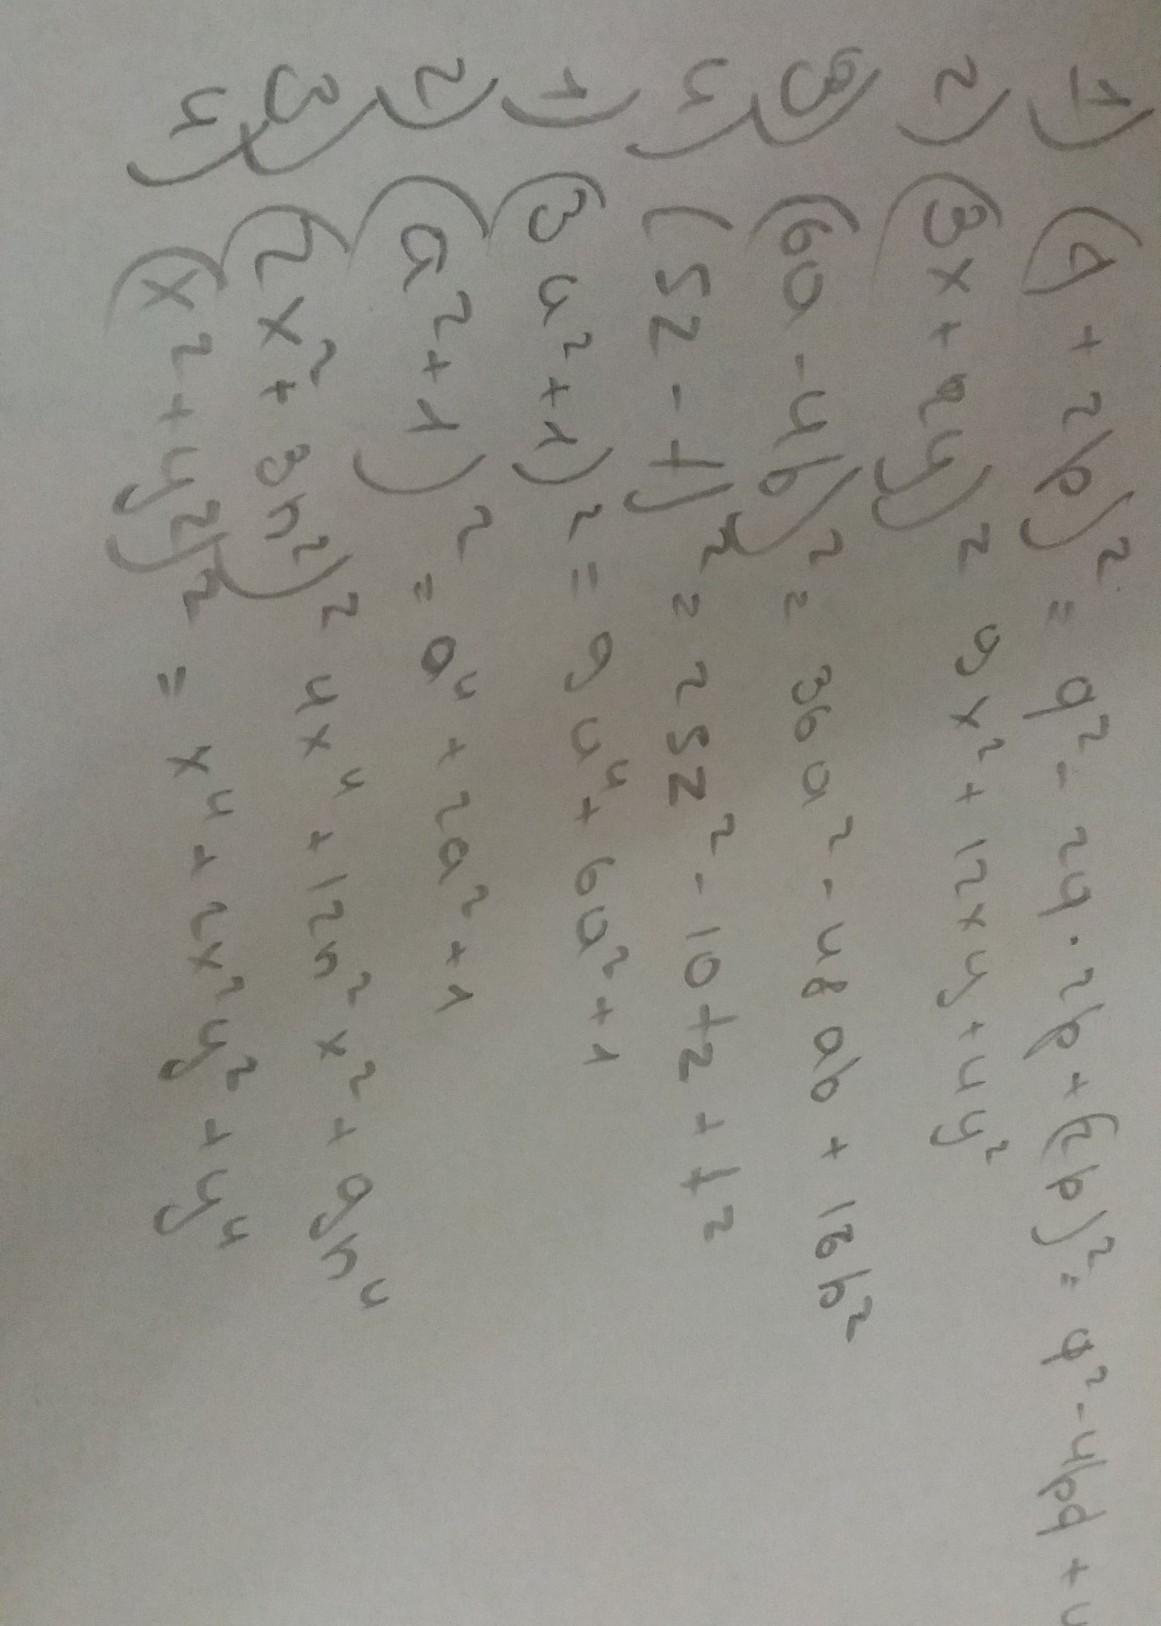 1) (q + 2p)² = q² - 2q · 2p + (2p)² = q² - 4pq + 4
2) (3x + 2y)² 9x² + 12xy + 4y²
3) (6a - 4b)² = 36a² - 48ab + 16b²
4) (5z - t)² = 25z² - 10tz + t²
1) (3u² + 1)² = 9u⁴ + 6u² + 1
2) (a² + 1)² = a⁴ + 2a² + 1
3) (2x² + 3n²)² 4x⁴ + 12n²x² + 9n⁴
4) (x² + y²)² = x⁴ + 2x²y² + y⁴